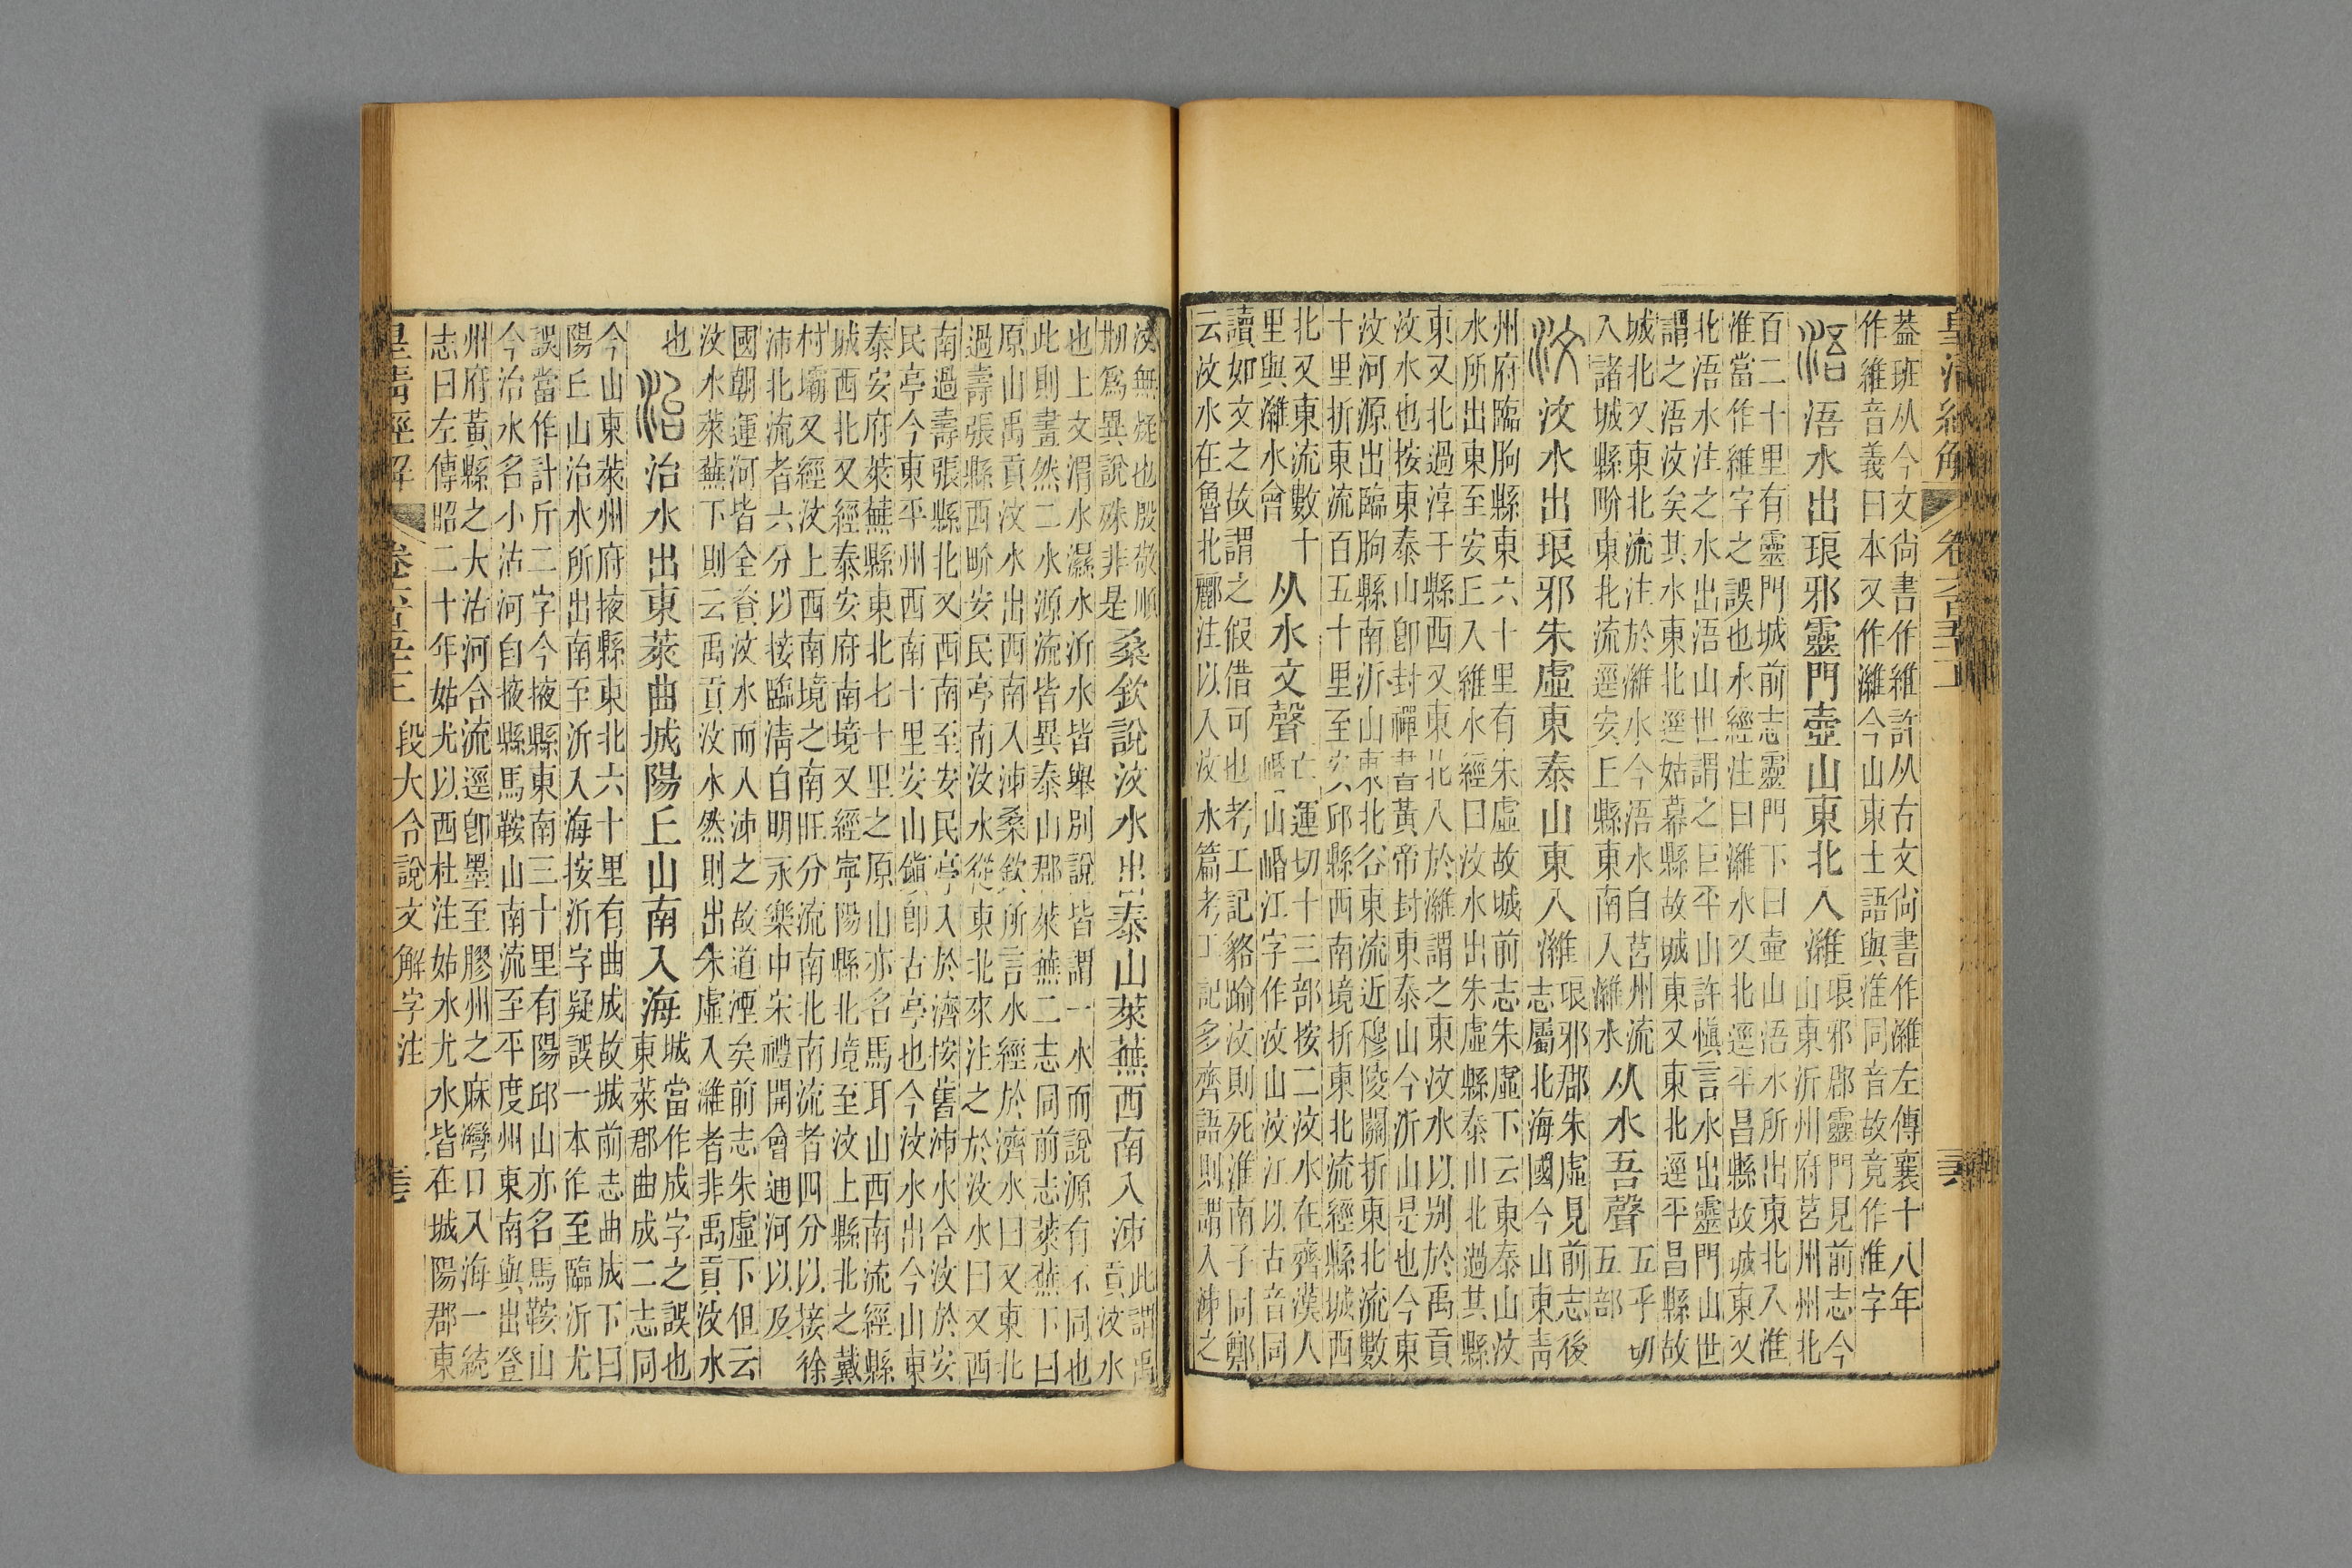 皇清經解
葢班从今文尚書作維許从古文尚書作濰左傳襄十八年
作維音義曰本又作濰今山東士語與淮同音故竟作淮字
浯 浯水出琅邪靈門壺山東北入濰
琅邪郡靈門見前志今
山東沂州府莒州州北
百二十里有靈門城前志靈門下曰壺山浯水所出東北入淮
淮當作維字之誤也水經注曰濰水又北逕平昌縣故城東又
北浯水注之水出浯山世謂之巨平山許愼言水出靈門山世
謂之浯汶矣其水東北逕姑幕縣故城東又東北逕平昌縣故
城北又東北流注於濰水今浯水自莒州流
入諸城縣畍東北流逕安丘縣東南入濰水
从水吾聲
五乎切
五部
汶 汶水出琅邪朱虛東泰山東入濰
琅邪郡朱虛見前志後
志屬北海國今山東靑
州府臨朐縣東六十里有朱虛故城前志朱虛下云東泰山汶
水所出東至安丘入維水經曰汶水出朱虛縣泰山北過其縣
東又北過淳于縣西又東北入於濰謂之東汶水以別於禹貢
汶水也按東泰山卽封禪書黃帝封東泰山今沂山是也今東
汶河源出臨朐縣南沂山東北谷東流近穆陵關折東北流數
十里折東流百五十里至安邱縣西南境折東北流經縣城西
北又東流數十
里與濰水會
从水文聲
亡運切十三部按二汶水在齊漢人
㟭山㟭江字作汶山汶江以古音同
讀如文之故謂之假借可也考工記貉踰汶則死淮南子同鄭
云汶水在魯北酈注以入汶水篇考工記多齊語則謂入泲之
汶無疑也殷敬順
刱爲異說殊非是
桑欽說汶水出泰山萊蕪西南入泲
此謂禹
貢汶水
也上文渭水濕水沂水皆舉別說皆謂一水而說源有不同也
此則畫然二水源流皆異泰山郡萊蕪二志同前志萊蕪下曰
原山禹貢汶水出西南入泲桑欽所言水經於濟水曰又東北
過壽張縣西畍安民亭南汶水從東北來注之於汶水曰又西
南過壽張縣北又西南至安民亭入於濟按舊泲水合汶於安
民亭今東平州西南十里安山鎭卽古亭也今汶水出今山東
泰安府萊蕪縣東北七十里之原山亦名馬耳山西南流經縣
城西北又經泰安府南境又經寧陽縣北境至汶上縣北之戴
村壩又經汶上西南境之南旺分流南北南流者四分以接徐
沛北流者六分以接臨淸自明永樂中宋禮開會通河以及
國朝運河皆全資汶水而入泲之故道湮矣前志朱虛下但云
汶水萊蕪下則云禹貢汶水然則出朱虛入濰者非禹貢汶水
也
治 治水出東萊曲城陽丘山南入海
城當作成字之誤也
東萊郡曲成二志同
今山東萊州府掖縣東北六十里有曲成故城前志曲成下曰
陽丘山治水所出南至沂入海按沂字疑誤一本作至臨沂尤
誤當作計斤二字今掖縣東南三十里有陽邱山亦名馬鞍山
今治水名小沽河自掖縣馬鞍山南流至平度州東南與出登
州府黃縣之大沽河合流逕卽墨至膠州之麻灣口入海一統
志曰左傳昭二十年姑尤以西杜注姑水尤水皆在城陽郡東
皇清經解
段大令說文解字注